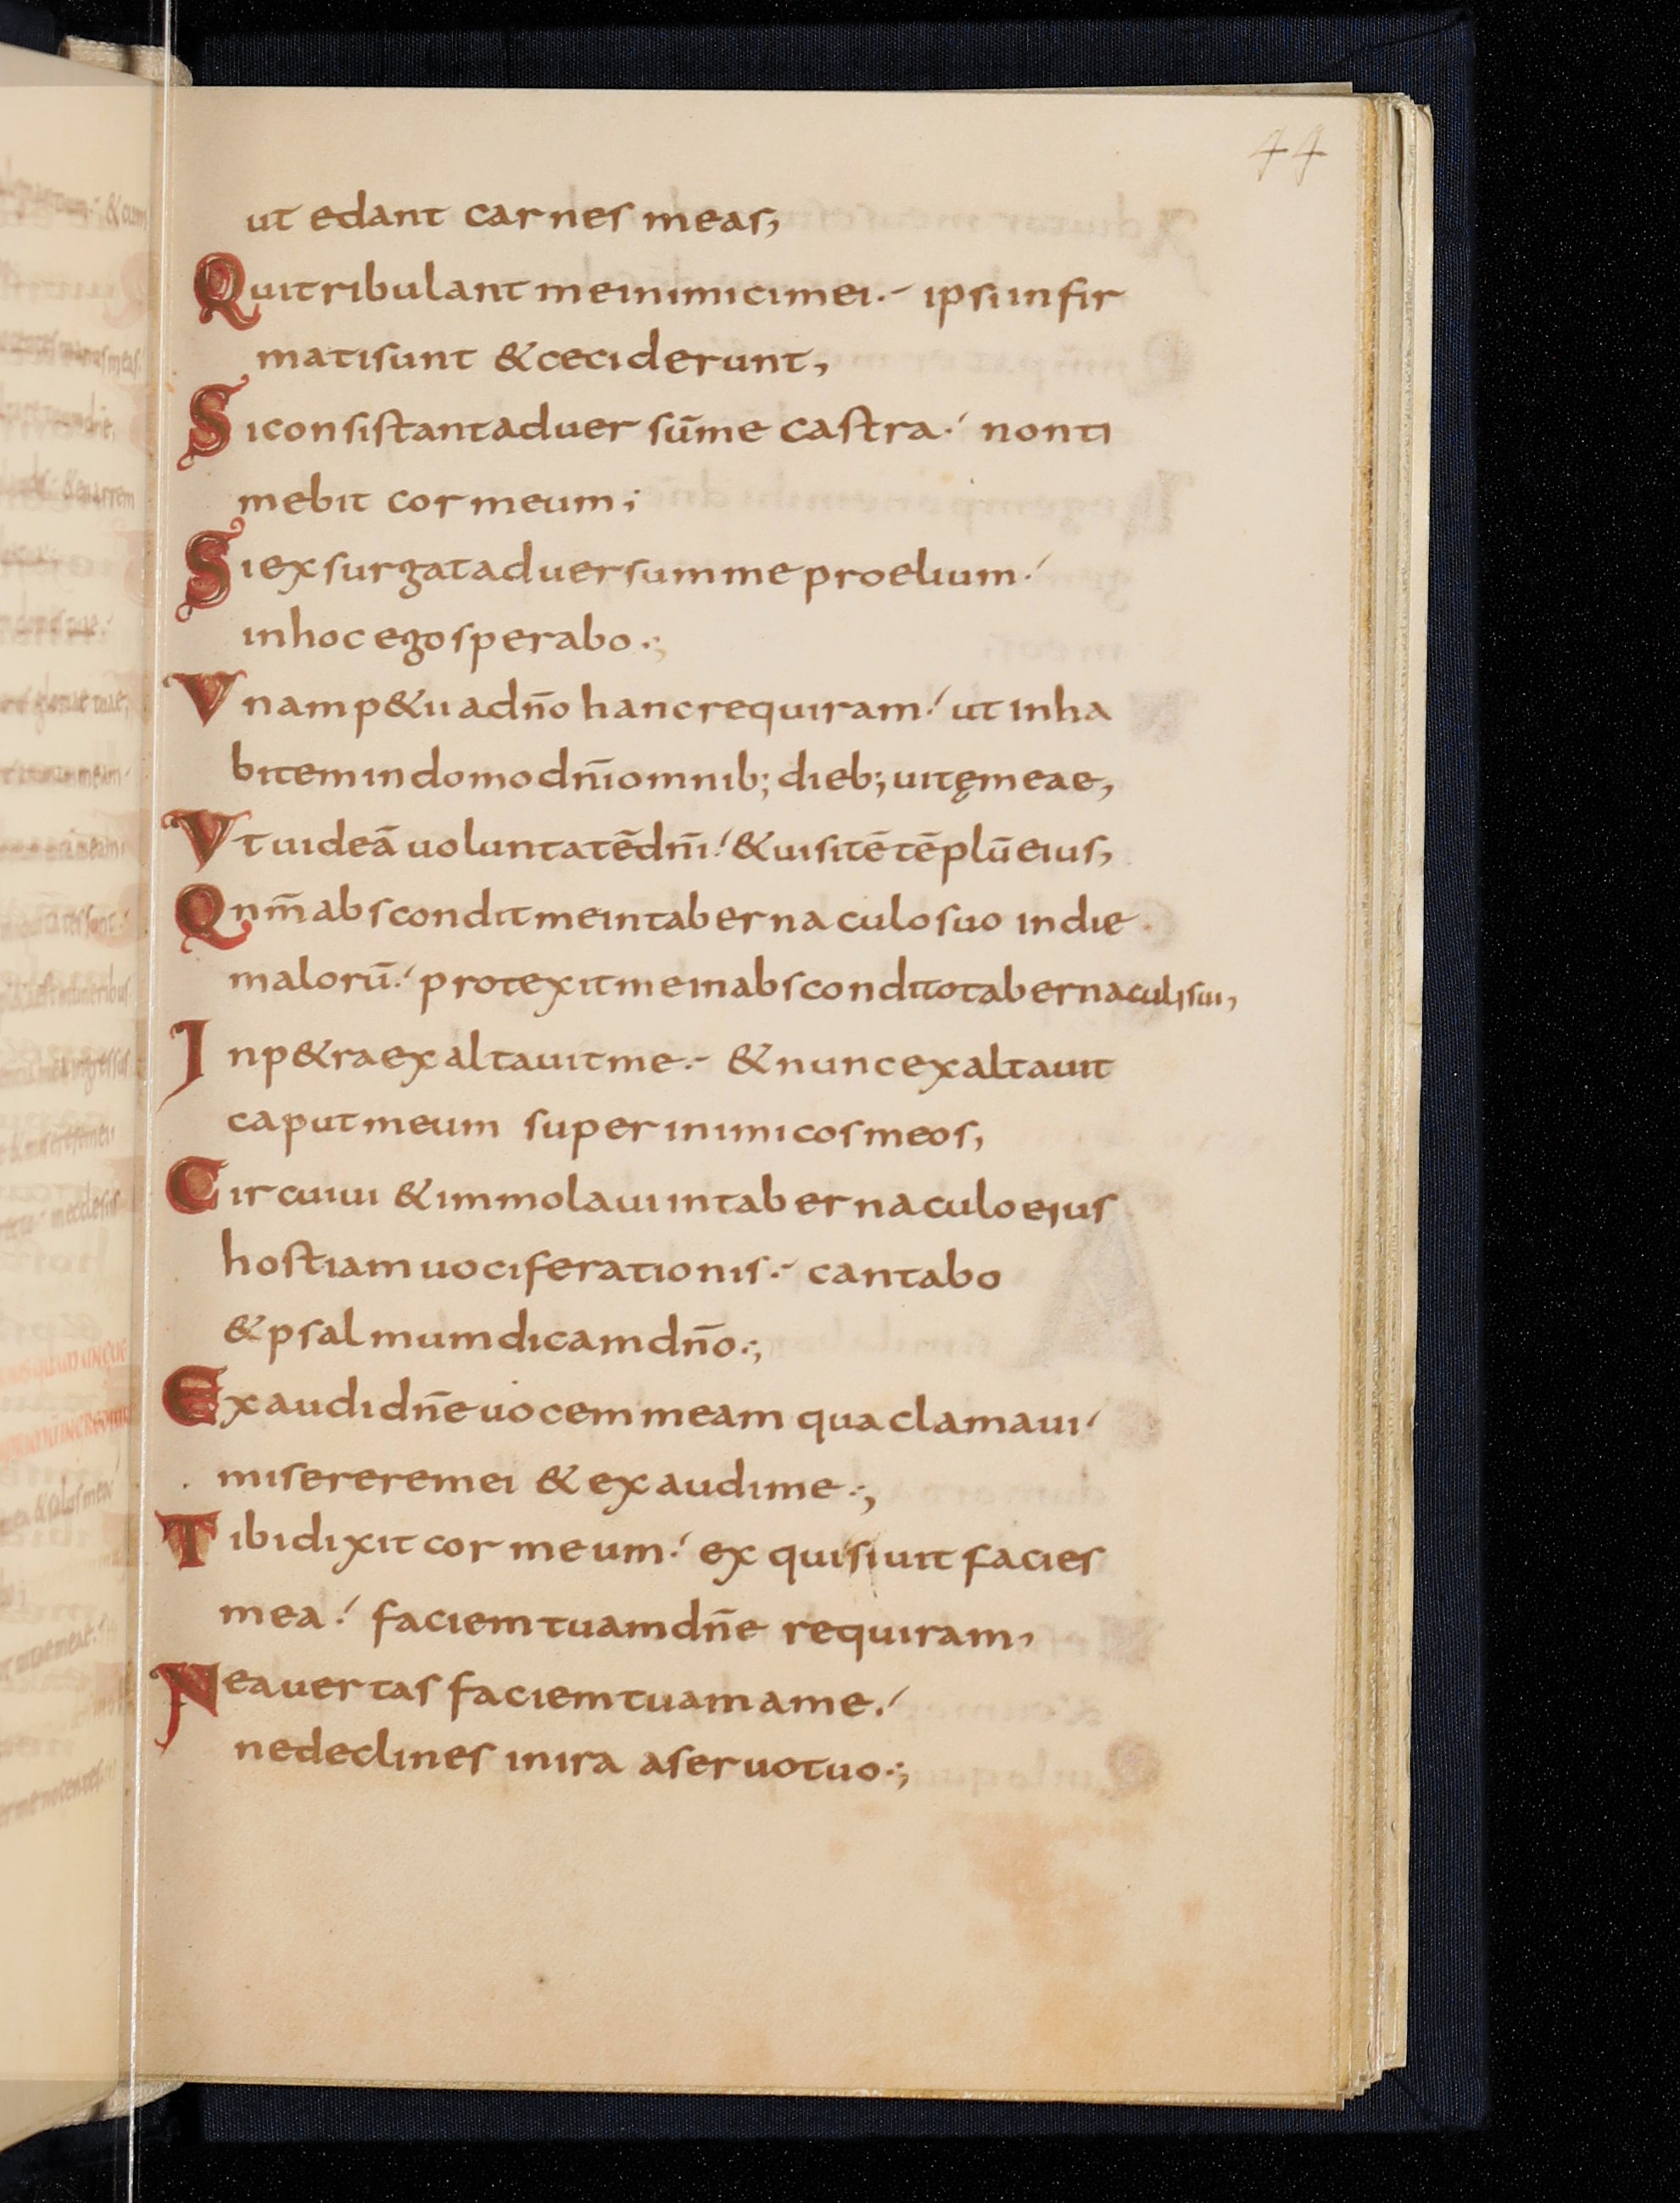 44
ut edant carnes meas,
Quitribulant meinimicimei.- ipsiinfir
matisunt &ceciderunt,
Siconsistantaduersūme castra.' nonti
mebit cormeum;
Siexsurgataduersummeproelium.'
inhocegosperabo.;
Vnamp&iiadn̄o hancrequiram.' ut inha
bitemindomodn̄iomnib; dieb; uitęmeae,
Vtuideā uoluntatēdn̄i.'&uisitē tēplū eius,
Qnm̄abscondit meintabernaculosuo indie
malorū.' protexitmeinabsconditotabernaculisui,
Inp&raexaltauitme.- &nuncexaltauit
caputmeum superinimicosmeos,
Circuiui &immolauiintabernaculoeius
hostiamuociferationis.- cantabo
&psalmumdicamdn̄o.;
Exaudidn̄euocemmeam quaclamaui'
misereremei &exaudime.;
Tibidixit cormeum.' exquisiuit facies
mea.' faciemtuamdn̄e requiram,
Neauertas faciemtuamame.'
nedeclines inira aseruotuo.;